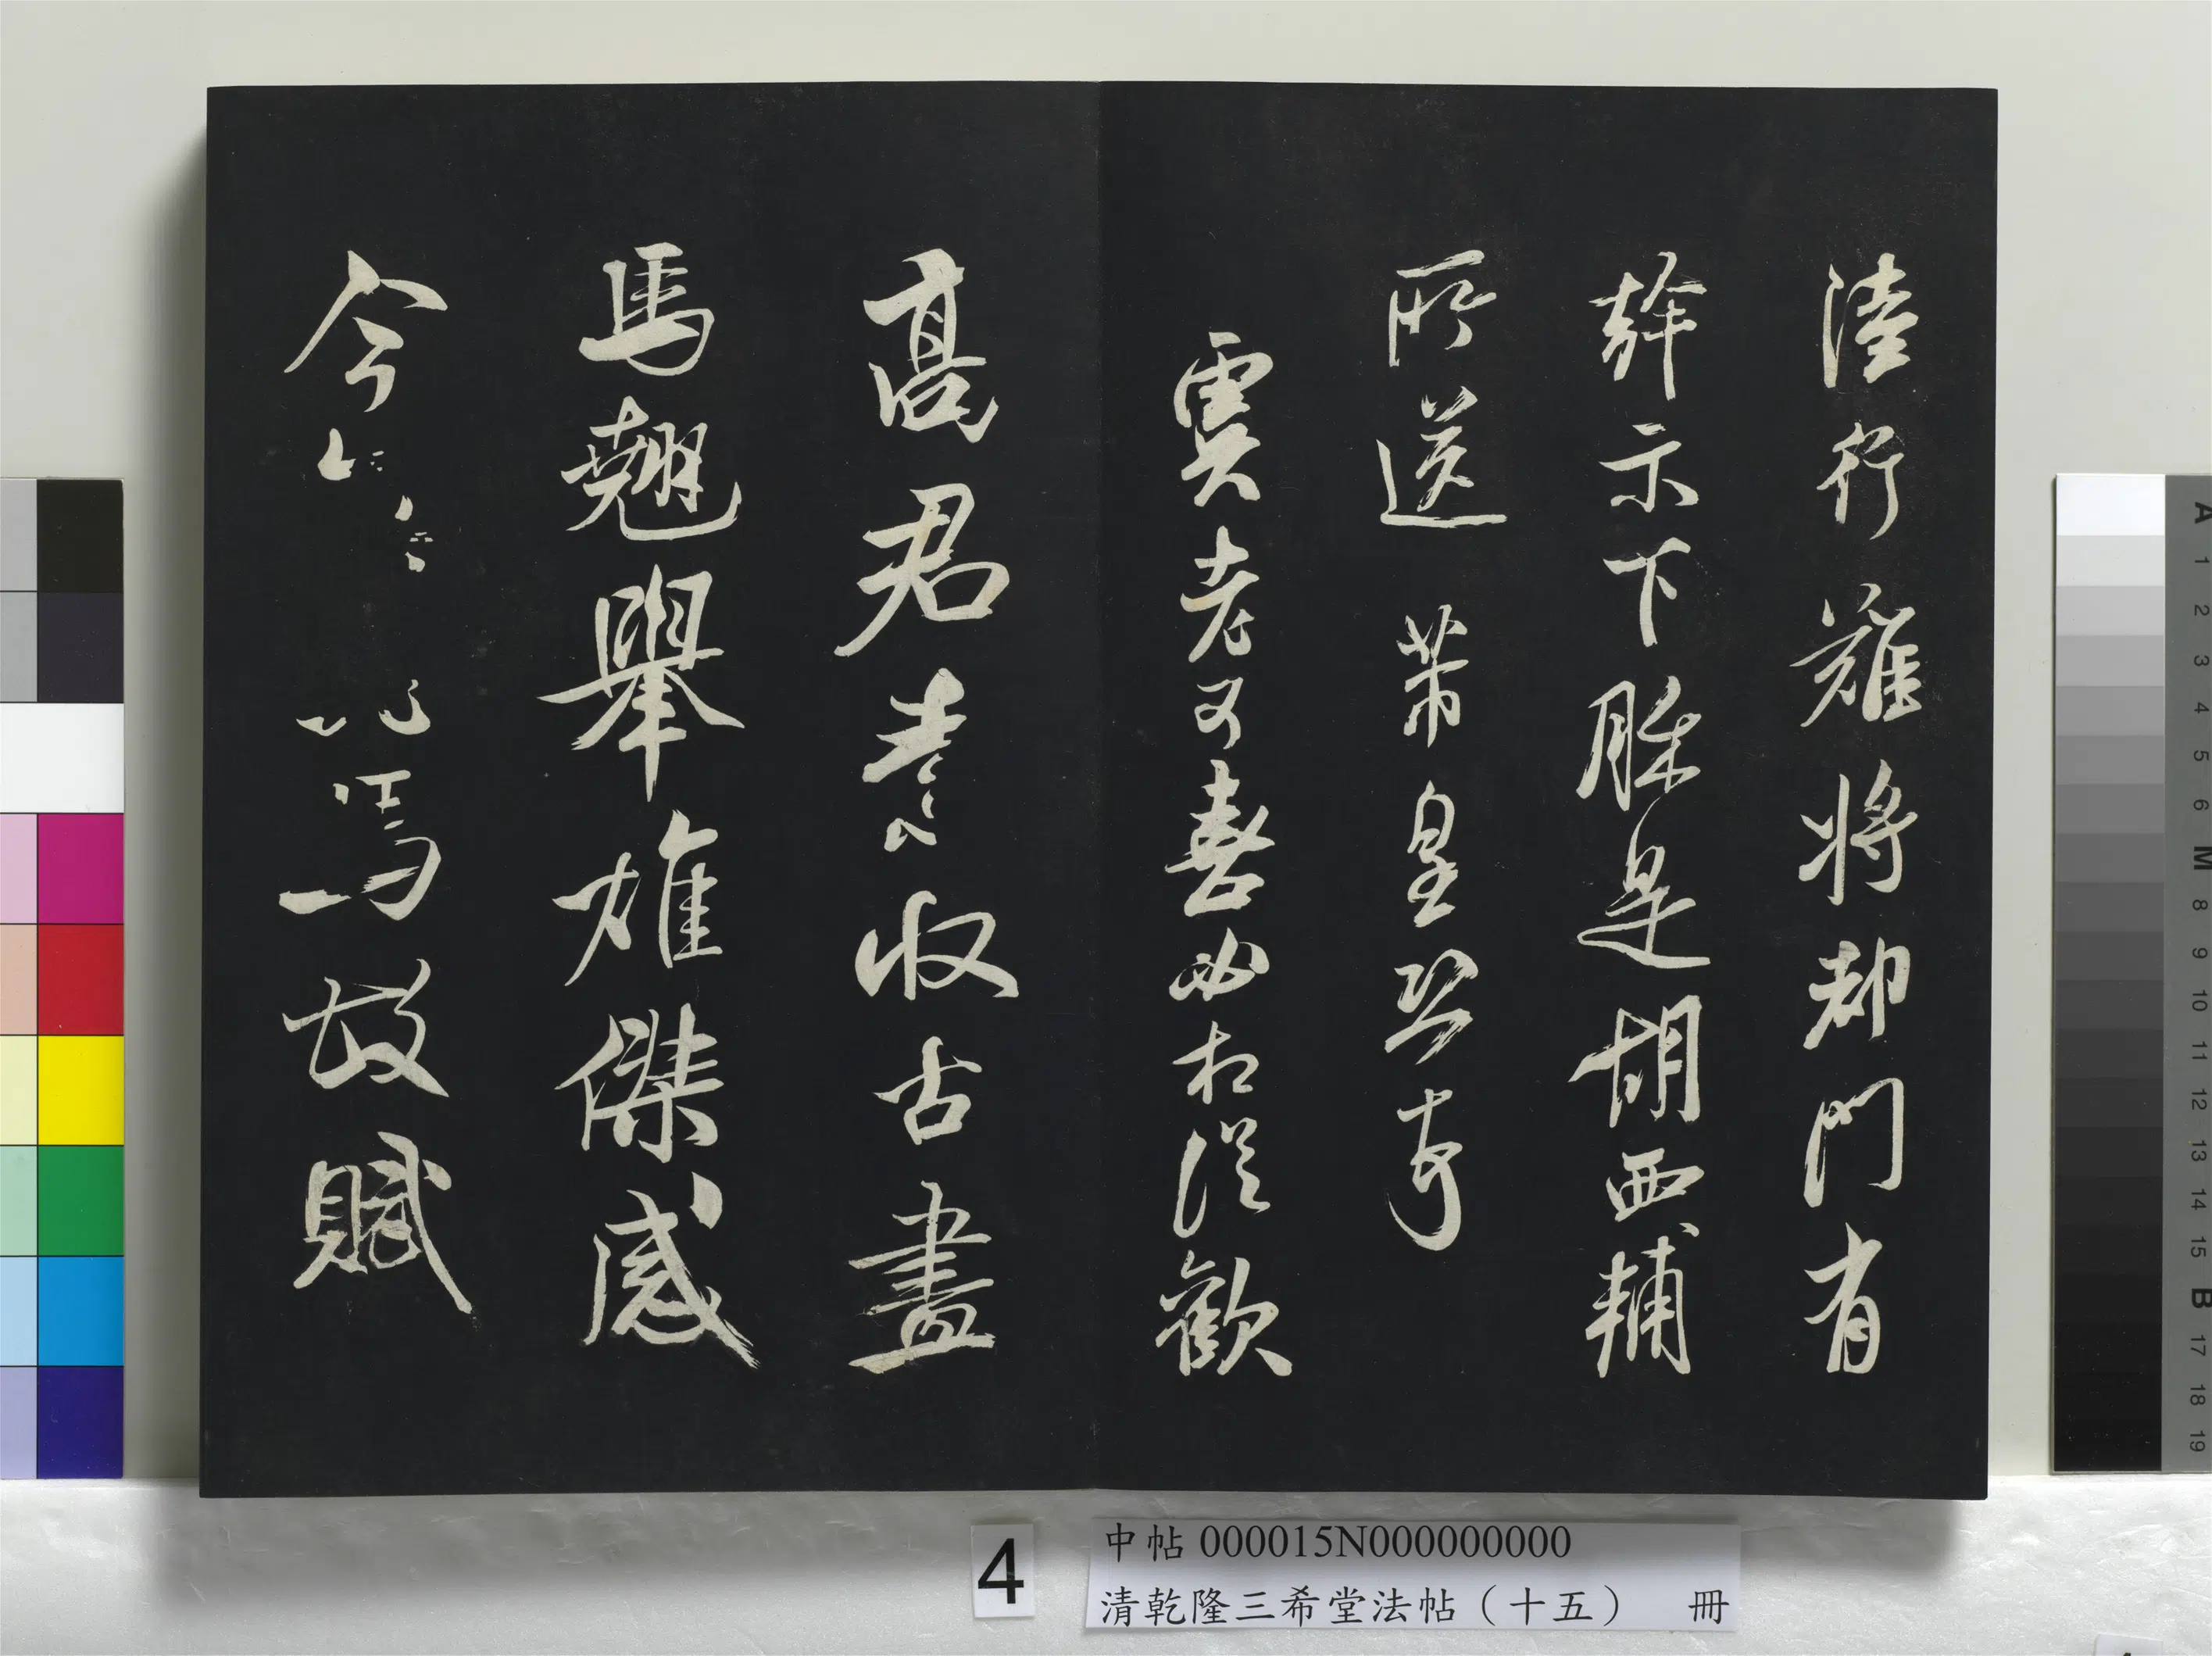 陸行難將却門有
幹示下𦜕是胡西輔
所送 芾皇恐
虞老可喜必相從歡
高君素收古畫
馬翹舉雄傑感
今 此馬故賦
4
中帖 000015N000000000
清乾隆三希堂法帖（十五） 冊
A 1 2 3 4 5 6 M 8 9 10 11 12 13 14 15 B 17 18 19